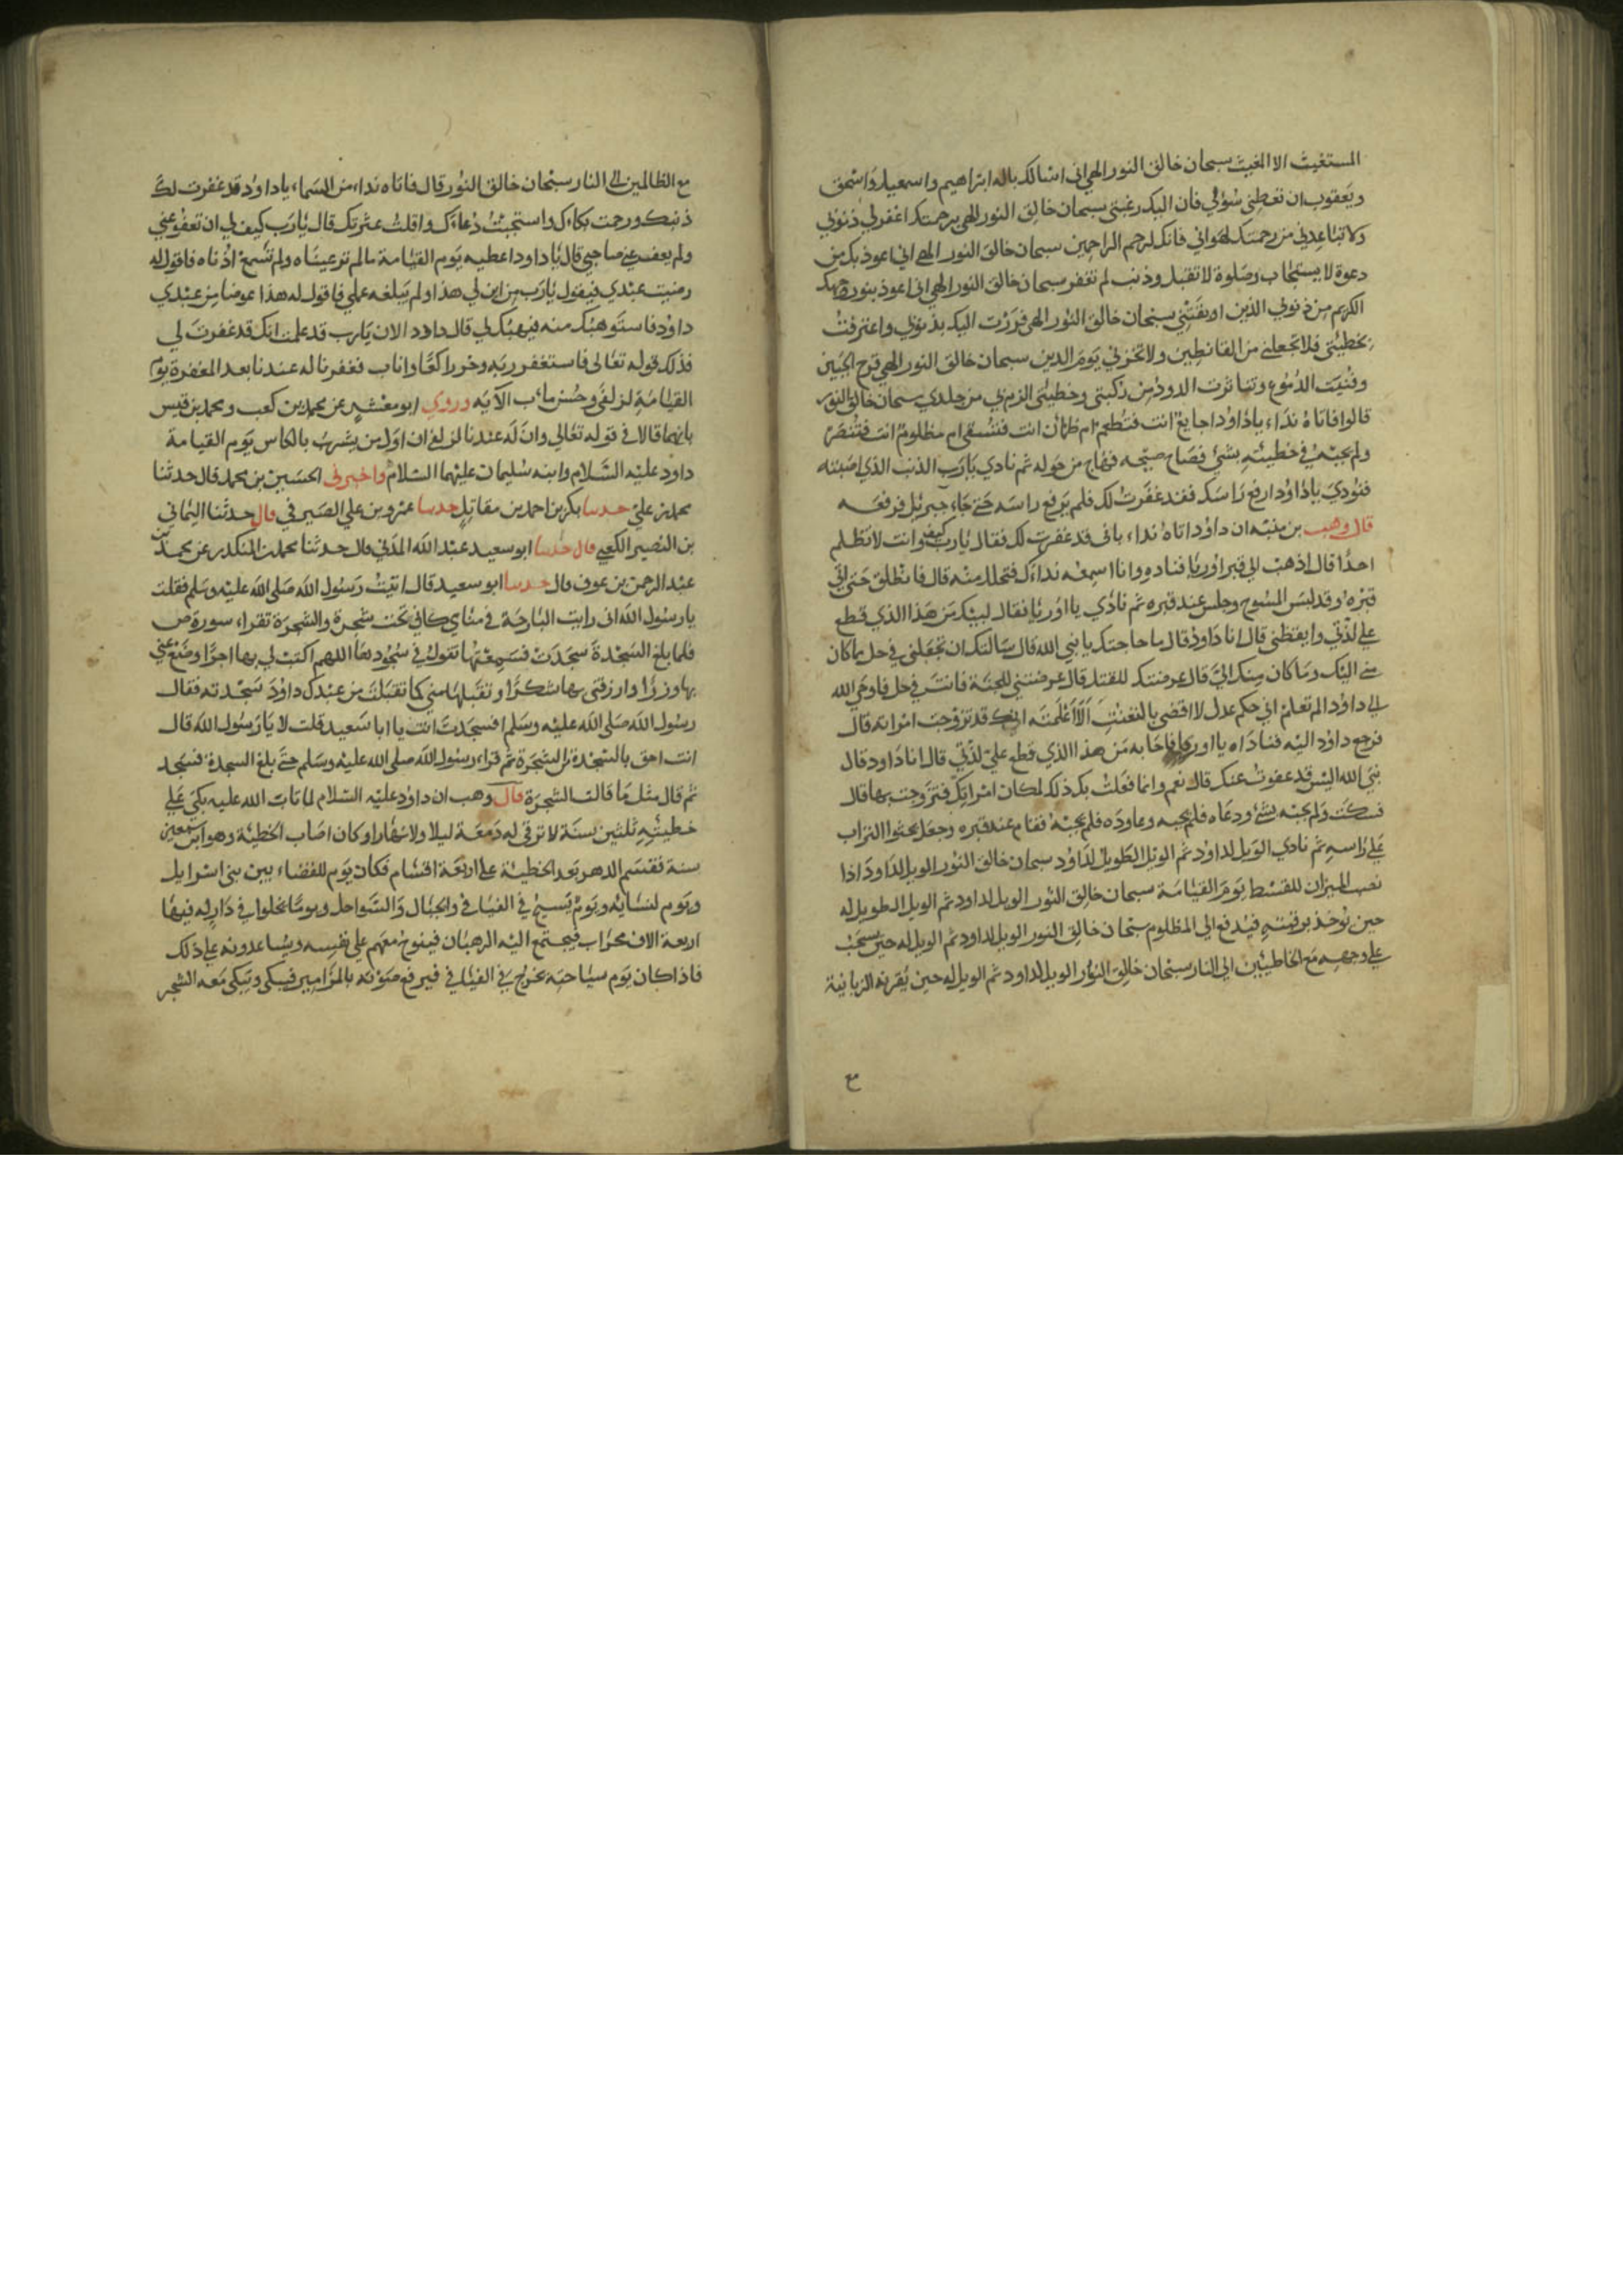 المستغيث الا المغيث سبحان خالق النور الهي اني اسالك باله ابراهيم واسمعيل واسحق
ويعقوب ان تعطيني سؤلي فان اليك رغبتي سبحان خالق النور الهي برحمتك اغفر لي ذنوبي
ولا تباعدني من رحمتك لهواني فانك ارحم الراحمين سبحان خالق النور الهي اني اعوذ بك من
دعوة لا يستجاب وصلوة لا تقبل وذنب لم تغفر سبحان خالق النور الهي اني اعوذ بنور وجهك
الكريم من ذنوبي الذين اوبقتني سبحان خالق النور الهي فررت اليك بذنوبي واعترفت
بخطيئتي فلا تجعلني من القانطين ولا تخزني يوم الدين سبحان خالق النور الهي قرح الجبين
وفنيت الدموع وتناثرت الدود من ركبتي وخطيئتي الزم بي من جلدي سبحان خالق النور
قالوا فاتاه نداء ياداود اجايع انت فتطعم ام ظمآن انت فتسقى ام مظلوم انت فتنصر
ولم يجبه في خطيئته بشئ فصاح صيحه فهاج من حوله ثم نادي يارب الذنب الذي اصبته
فنودي ياداود ارفع راسك فقد غفرت لك فلم يرفع راسه حتى جاء جبريل فرفعه
قال وهب بن منبه ان داود اتاه نداء باني قد غفرت لك فقال يارب كيف وانت لا تظلم
احدا قال اذهب الى قبر اوريا فناده وانا اسمعه نداءك فتحلل منه قال فانطلق حتى اتي
قبره وقد لبس المسوح وجلس عند قبره ثم نادي يا اوريا فقال لبيك من هذا الذي قطع
علي لذتي وايقظني قال انا داود قال ما حاجتك يا نبي الله قال سالتك ان تجعلني في حل بما كان
مني اليك وما كان منك الي قال عرضتك للقتل قال عرضتني للجنة فانت في حل فاوحي الله
الي داود الم تعلم اني حكم عدل لا اقضي بالتعنت الا اعلمته انك قد تزوجت امراته قال
فرجع داود اليه فناداه يا اوريا فاجابه من هذا الذي قطع علي لذتي قال انا داود قال
نبي الله اليس قد عفوت عنك قال نعم وانما فعلت بك ذلك لمكان امراتك فتزوجت بها قال
فسكت ولم يجبه بشئ ودعاه فلم يجبه وعاوده فلم يجبه فقام عند قبره وجعل يحثوا التراب
علي راسه ثم نادي الويل لداود ثم الويل الطويل لداود سبحان خالق النور الويل لداود اذا
نصب الميزان للقسط يوم القيامة سبحان خالق النور الويل لداود ثم الويل الطويل له
حين يؤخذ برقبته فيدفع الي المظلوم سبحان خالق النور الويل لداود ثم الويل له حين يسحب
علي وجهه مع الخاطيين الي النار سبحان خالق النور الويل لداود ثم الويل له حين يقربه الزبانية
مع
مع الظالمين الى النار سبحان خالق النور قال فاتاه نداء من السماء ياداود قد غفرت لك
ذنبك ورحمت بكاءك واستجبت دعاءك واقلت عثرتك قال يارب كيف لي ان تعفو عني
ولم يعف عني صاحبي قال ياداود اعطيه يوم القيامة ما لم تر عيناه ولم تسمع اذناه فاقول له
رضيت عبدي فيقول يارب من اين لي هذا ولم يبلغه عملي فاقول له هذا عوضا من عبدي
داود فاستوهبك منه فيهبك لي قال داود الان يارب قد علمت انك قد غفرت لي
فذلك قوله تعالى فاستغفر ربه وخر راكعا واناب فغفرنا له عندنا بعد المغفرة يوم
القيامة لزلفى وحسن ماب الايه وروي ابو معشر عن محمد بن كعب ومحمد بن قيس
بانهما قالا في قوله تعالي وان له عندنا لزلفى ان اول من يشرب بالكاس يوم القيامة
داود عليه السلام وابنه سليمان عليهما السلام واخبرني الحسين بن محمد قال حدثنا
محمد بن علي حدثنا بكر بن احمد بن مقاتل حدثنا عمرو بن علي الصيرفي قال حدثنا اليماني
بن النصير الكعبي قال حدثنا ابو سعيد عبد الله المدني قال حدثنا محمد بن المنكدر عن محمد بن
عبد الرحمن بن عوف قال حدثنا ابو سعيد قال اتيت رسول الله صلى الله عليه وسلم فقلت
يارسول الله اني رايت البارحة في منامي كاني تحت شجرة والشجرة تقراء سورة ص
فلما بلغ السجدة سجدت فسمعتها تقول في سجودها اللهم اكتب لي بها اجرا وضع عني
بها وزرا وارزقني بها شكرا وتقبلها مني كما تقبلت من عبدك داود سجدته فقال
رسول الله صلى الله عليه وسلم افسجدت انت يا ابا سعيد قلت لا يارسول الله قال
انت احق بالسجدة من الشجرة ثم قراء رسول الله صلي الله عليه وسلم حتى بلغ السجدة فسجد
ثم قال مثل ما قالت الشجرة قال وهب ان داود عليه السلام لما تاب الله عليه بكى على
خطيئته ثلثين سنة لا ترقى له دمعة ليلا ولا نهارا وكان اصاب الخطيئة وهو ابن سبعين
سنة فقسم الدهر بعد الخطيئة علي اربعة اقسام فكان يوم للقضاء بين بني اسرايل
ويوم لنسايه ويوم يسيح في الفيافي والجبال والسواحل ويوما يخلوا في دار له فيها
اربعة الاف محراب فيجتمع اليه الرهبان فينوح معهم علي نفسه ويساعدونه علي ذلك
فاذا كان يوم سياحته يخرج في الفيافي فيرفع صوته بالمزامير فيبكي وتبكي معه الشجر